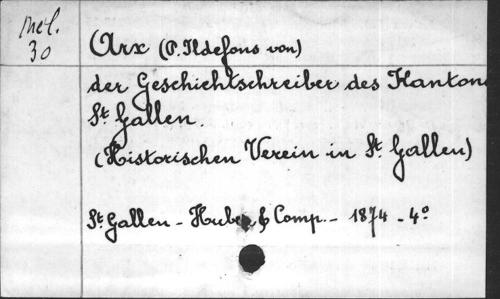 Mel.
30
Arx (P. Ildefons von)
der Geschichtschreiber des Kanton
St Gallen.
(Historischen Verein in St. Gallen)
St Gallen - Huber & Comp. - 1874 - 4°